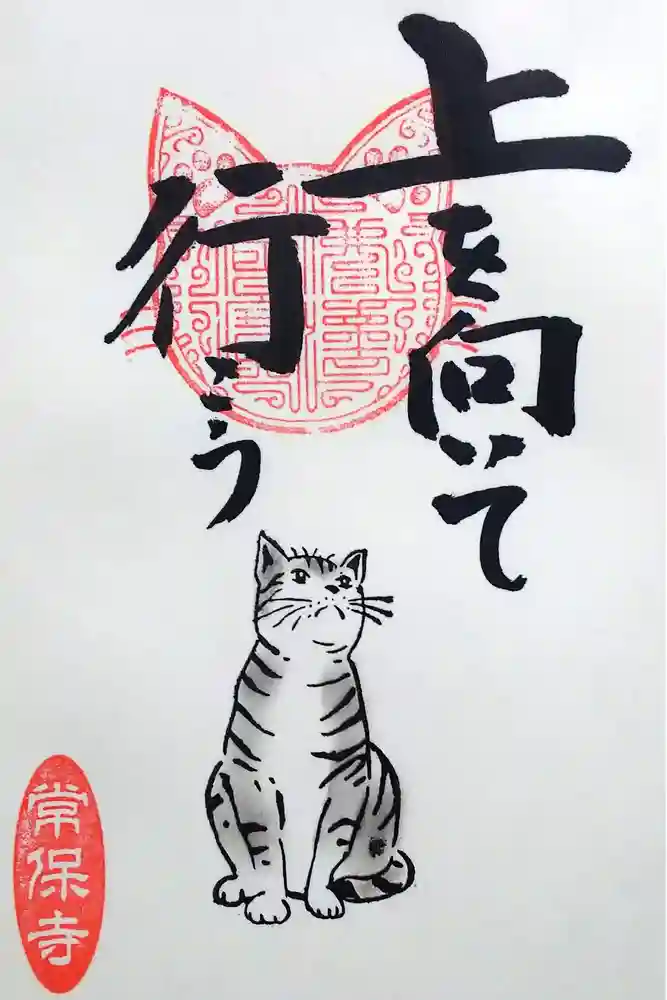 上を向いて
行こう
常保寺